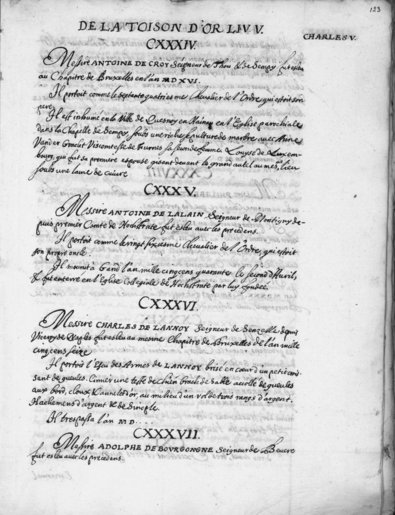 123
DE LA TOISON D'OR LIV V.
CHARLES V.
CXXXIV
Messire ANTOINE DE CROY Seigneur de Thou & de Sempy fut esleu
au Chapitre de Bruxelles en l'an M D XVI.
Il portoit comme le septante quatriesme Chevalier de l'Ordre, qui estoit son
pere.
Il est inhumé en la Ville de Quesnoy en Hainau en l'Eglise parochiale
dans la Chapelle de Sempy, soubs une riche sculpture de marbre avec Anne
Vand er Gracht Vicomtesse de Furnes sa femme, Louyse de Luxem-
bourg, qui fut sa premiere espouse gisent devant le grand autel au mesme lieu
soubs une lame de cuivre
CXXXV.
Messire ANTOINE DE LALAIN Seigneur de Montigny de-
puis premier Comte de Hochstrate fut esleu avec les precedens.
Il portoit comme le vingt sixiesme Chevalier de l'Ordre, qui estoit
son oncle.
Il mourut à Gand l'an mille cinq cens quarante le second d'Avril,
& fut enterré en l'Eglise Collegiale de Hochstrate par luy fondée.
CXXXVI.
Messire CHARLES DE LANNOY Seigneur de Senzelle depuis
Viceroy de Naples fut esleu au mesme Chapitre de Bruxelles de l'an mille
cinq cens seize
Il portoit l'Escu des Armes de LANNOY brisé en cœur d'un petit crois-
sant de gueules. Cimier une teste de chien braché de sable accolé de gueules
aux bord, cloux & annelet d'or au milieu d'un vol
d'argent.
Hachemens d'argent & de Sinople.
Il trespassa l'an M D ....
CXXXVII.
Messire ADOLPHE DE BOURGONGNE Seigneur de Bevere
fut esleu avec les precedens.